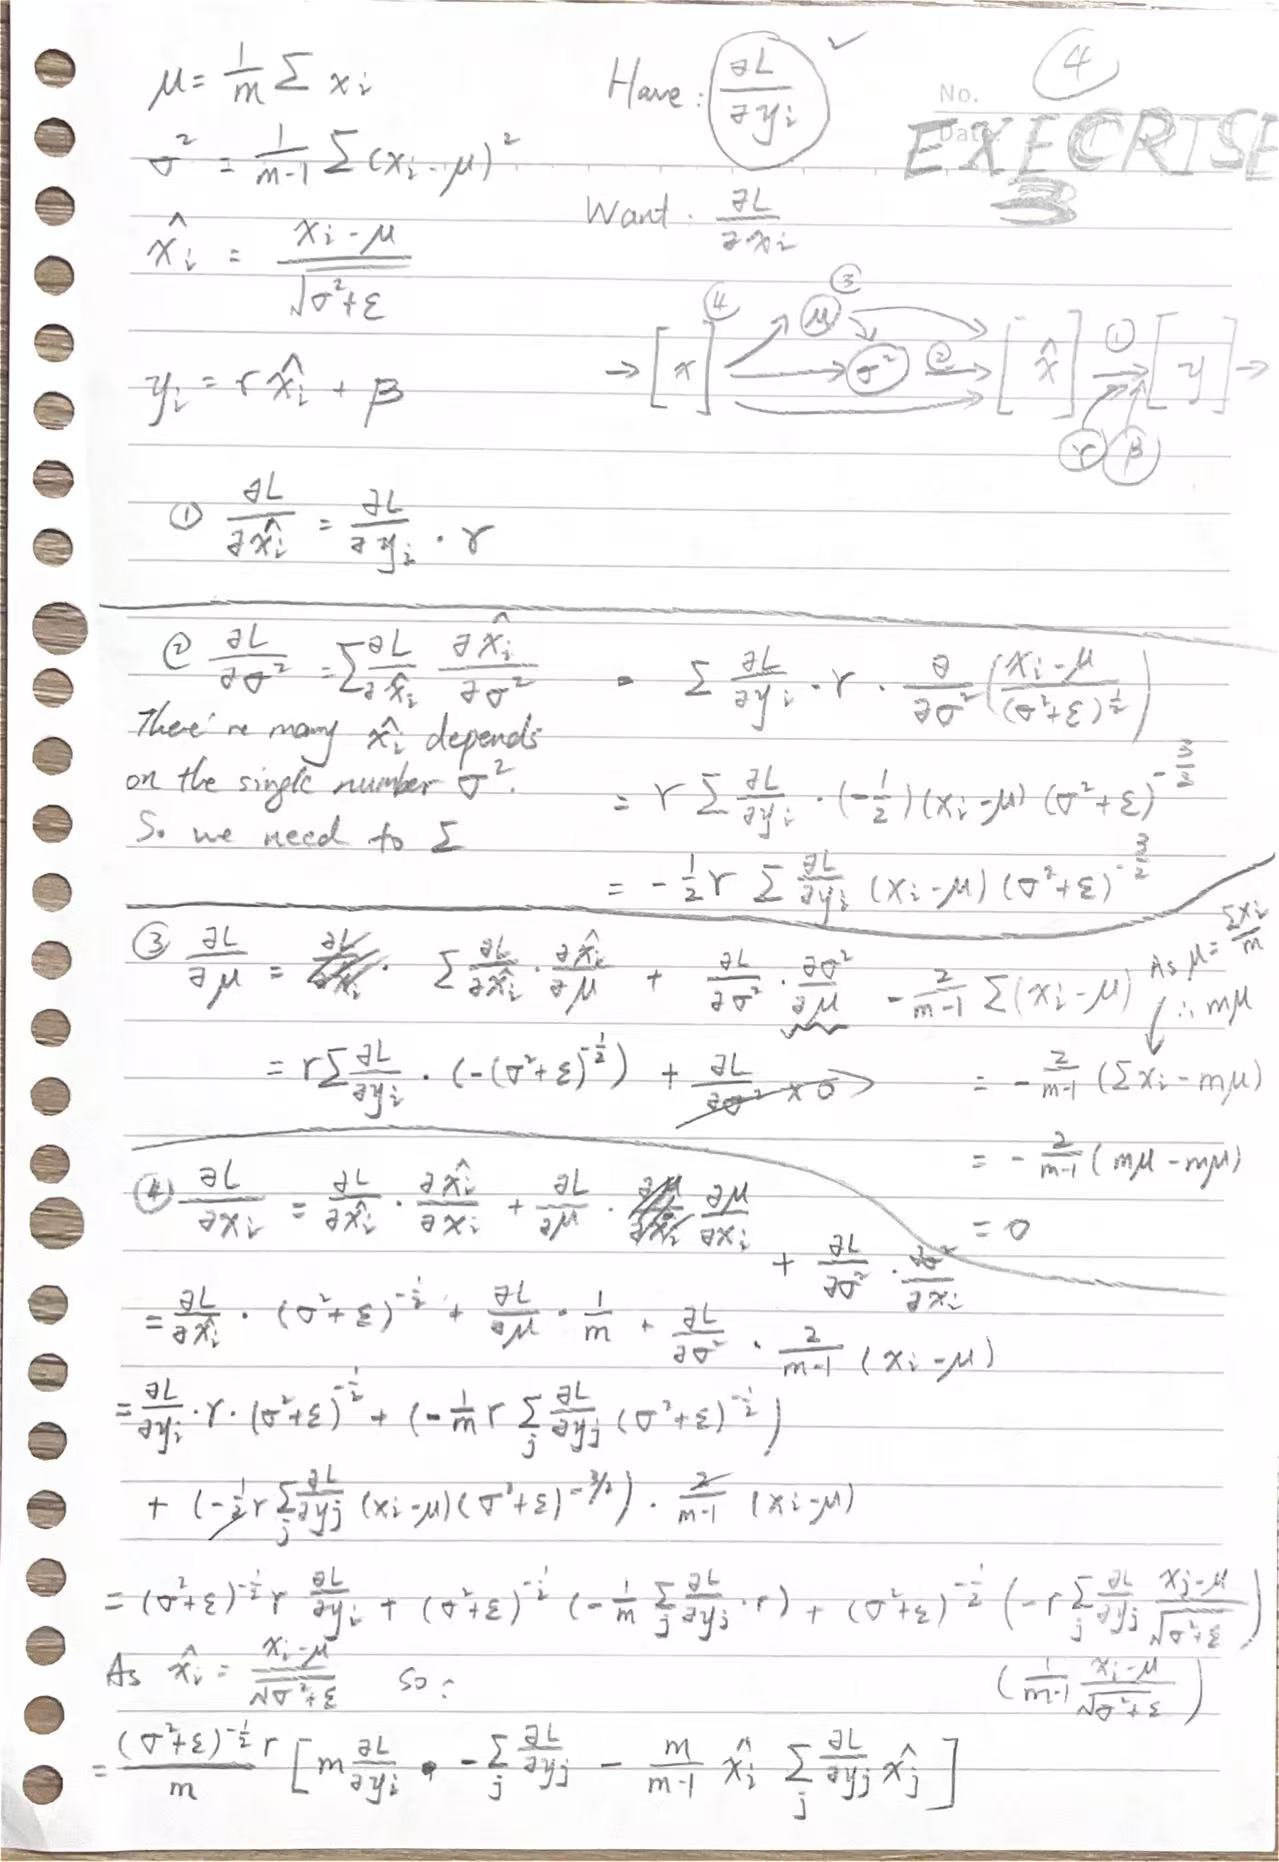 μ = 1/m Σ xᵢ
Have: ∂L/∂yᵢ ✓
④
No.
Date
EXECRISE
3
σ² = 1/(m-1) Σ(xᵢ - μ)²
Want. ∂L/∂xᵢ
x̂ᵢ = (xᵢ - μ)/√(σ²+ε)
④ ③
→ [x] → μ → σ² ② → [x̂] ① → [y] →
yᵢ = r x̂ᵢ + β
γ β
① ∂L/∂x̂ᵢ = ∂L/∂yᵢ · r
② ∂L/∂σ² = Σ ∂L/∂x̂ᵢ ∂x̂ᵢ/∂σ² = Σ ∂L/∂yᵢ · r · ∂/∂σ² ((xᵢ - μ)/(σ²+ε)^½)
There're many x̂ᵢ depends
on the single number σ².
So we need to Σ
= r Σ ∂L/∂yᵢ · (-½)(xᵢ-μ)(σ²+ε)^(-3/2)
= -½ r Σ ∂L/∂yᵢ (xᵢ-μ)(σ²+ε)^(-3/2)
③ ∂L/∂μ = Σ ∂L/∂x̂ᵢ · ∂x̂ᵢ/∂μ + ∂L/∂σ² · ∂σ²/∂μ
-2/(m-1) Σ(xᵢ-μ)
As μ = Σxᵢ/m
∴ mμ
= rΣ ∂L/∂yᵢ · (-(σ²+ε)^(-½)) + ∂L/∂σ² × 0 →
= -2/(m-1) (Σxᵢ - mμ)
= -2/(m-1) (mμ - mμ)
= 0
④ ∂L/∂xᵢ = ∂L/∂x̂ᵢ · ∂x̂ᵢ/∂xᵢ + ∂L/∂μ · ∂μ/∂xᵢ
+ ∂L/∂σ² · ∂σ²/∂xᵢ
= ∂L/∂x̂ᵢ · (σ²+ε)^(-½) + ∂L/∂μ · 1/m + ∂L/∂σ² · 2/(m-1) (xᵢ-μ)
= ∂L/∂yᵢ · r · (σ²+ε)^(-½) + (-1/m r Σⱼ ∂L/∂yⱼ (σ²+ε)^(-½))
+ (-½ r Σⱼ ∂L/∂yⱼ (xᵢ-μ)(σ²+ε)^(-3/2)) · 2/(m-1) (xᵢ-μ)
= (σ²+ε)^(-½) r ∂L/∂yᵢ + (σ²+ε)^(-½) (-1/m Σⱼ ∂L/∂yⱼ · r) + (σ²+ε)^(-½) (-r Σⱼ ∂L/∂yⱼ (xⱼ-μ)/√(σ²+ε))
(1/(m-1) (xᵢ-μ)/√(σ²+ε))
As x̂ᵢ = (xᵢ-μ)/√(σ²+ε) so:
= (σ²+ε)^(-½) r / m [m ∂L/∂yᵢ - Σⱼ ∂L/∂yⱼ - m/(m-1) x̂ᵢ Σⱼ ∂L/∂yⱼ x̂ⱼ]